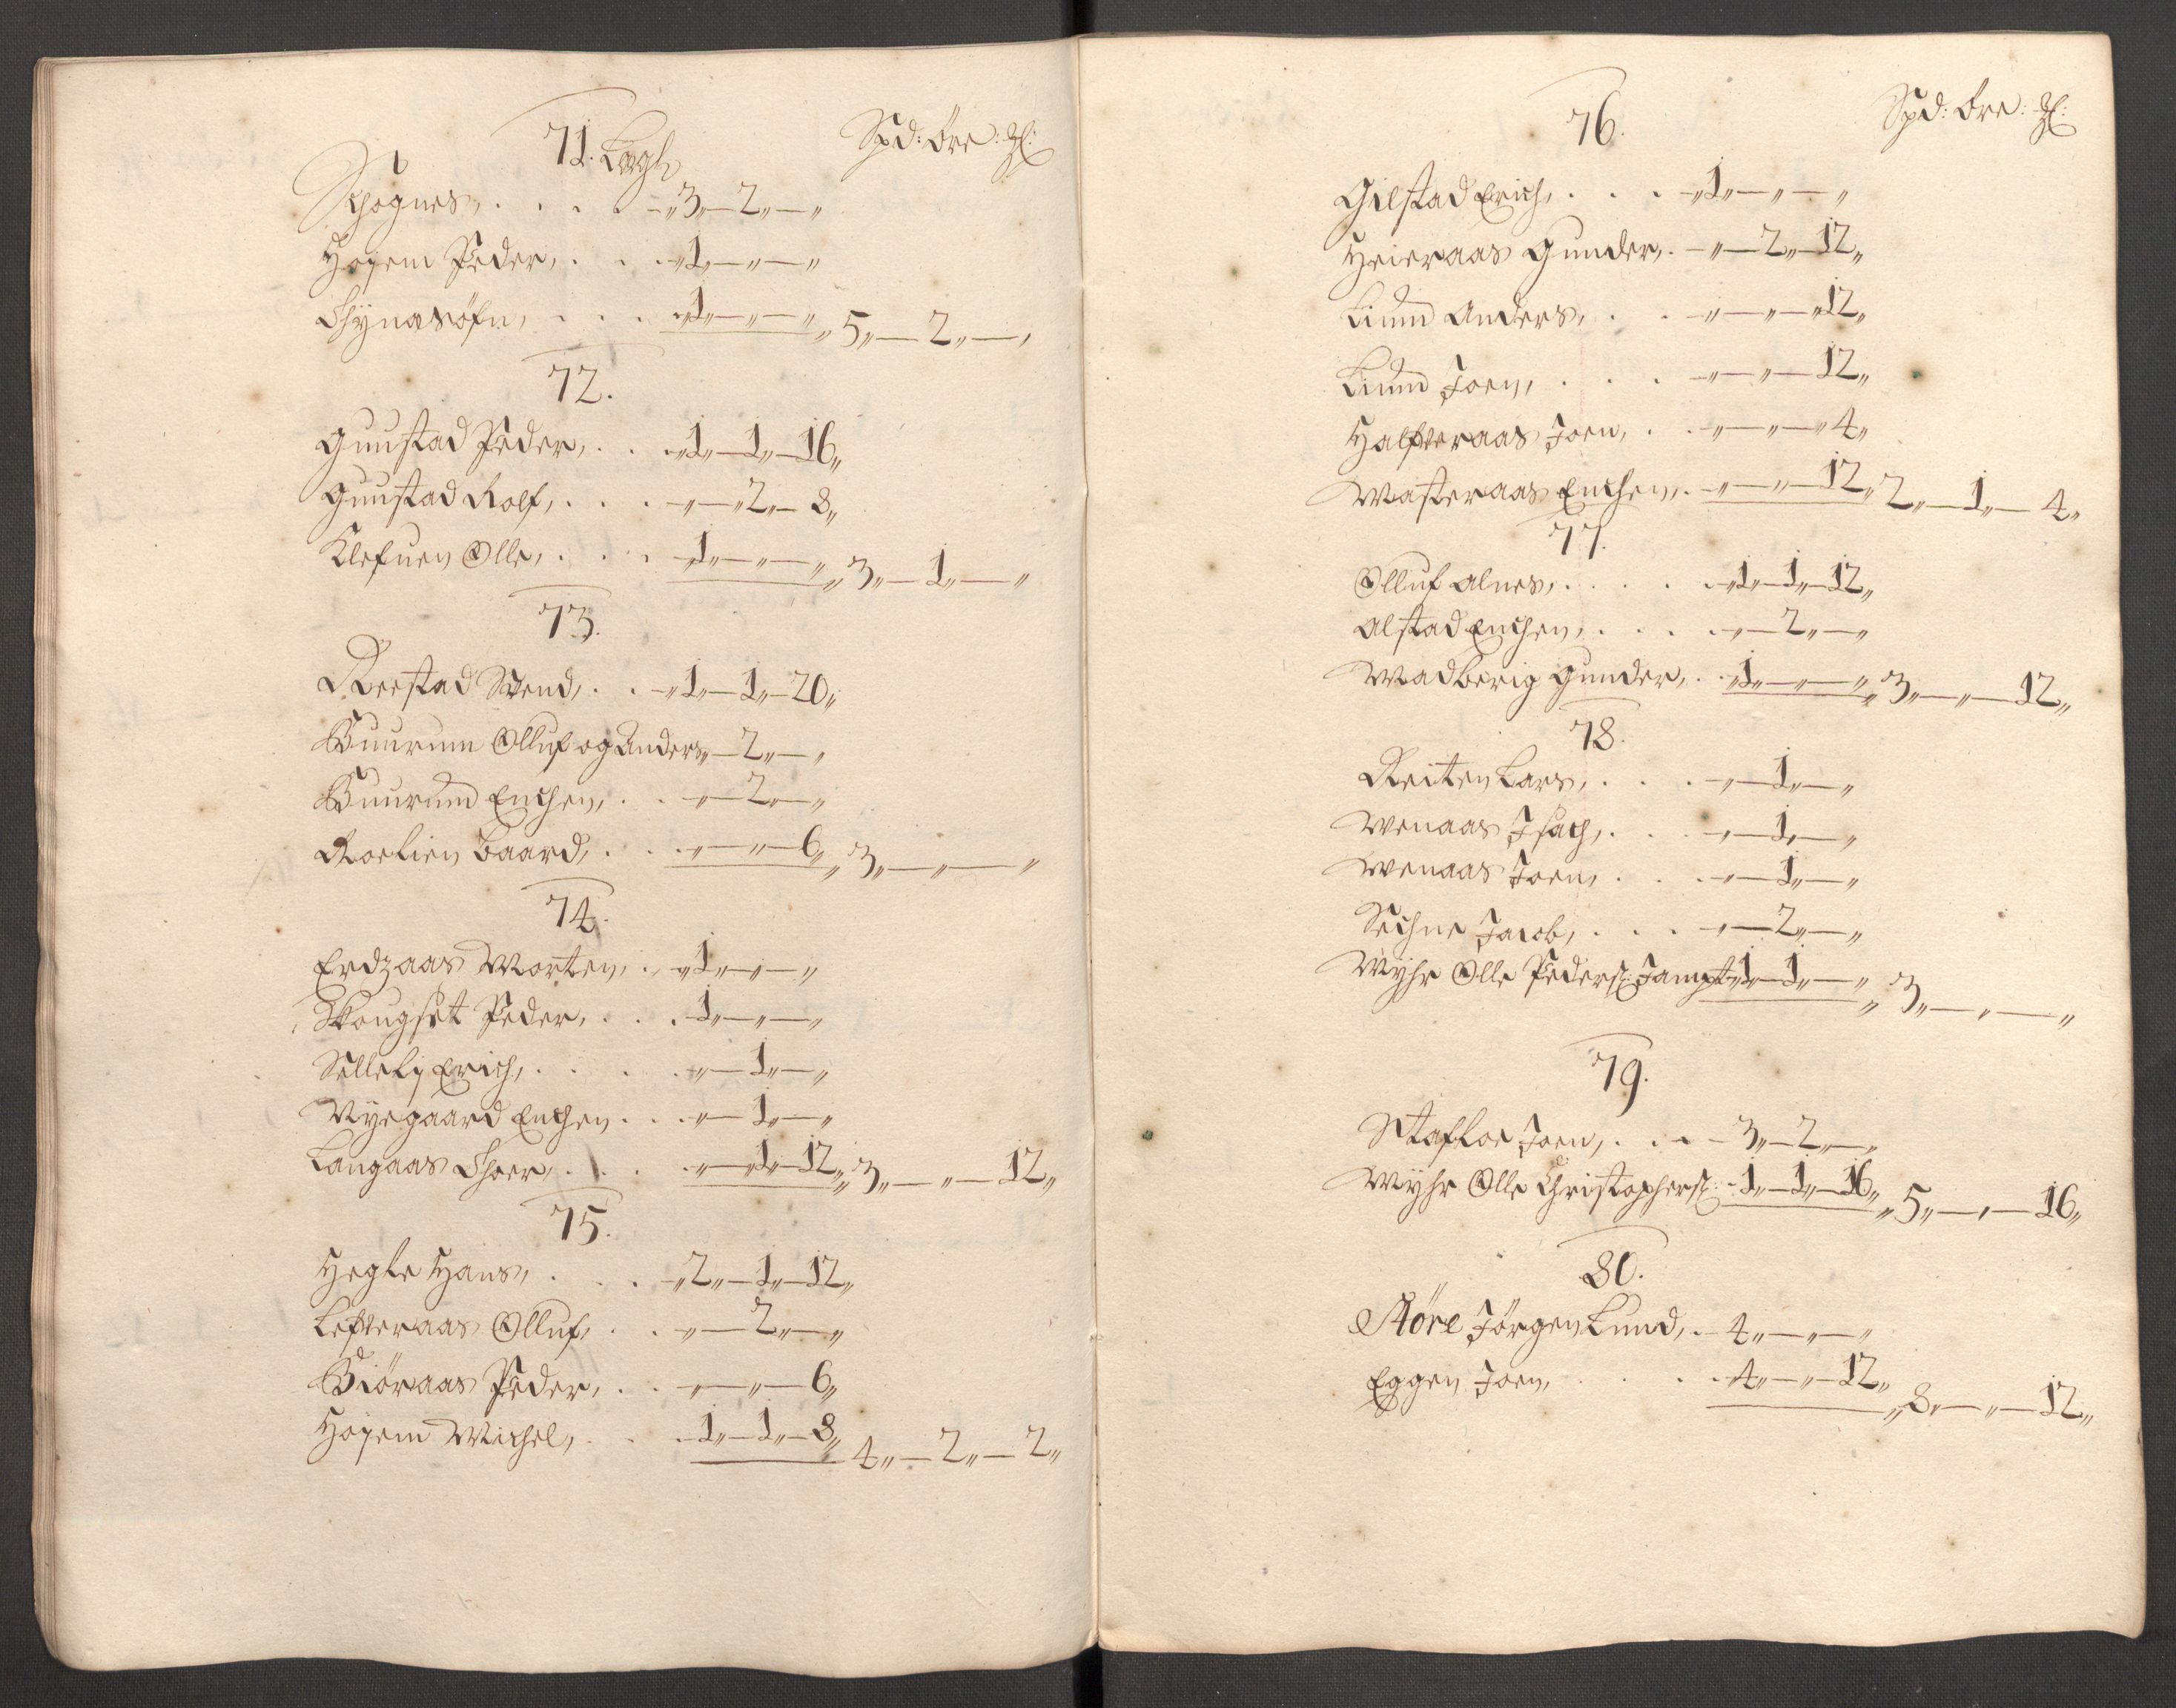 71. Lægh Spd: Öre: 
Schognes, . . . . -„3„-2„-„
Hojem Peder, . . . -„1„-„-„
Thynæsöfn, . . . . -„1„-„-„ „5„-2„-„
72.
Guustad Peder, . . -„1„-1„-16„
Guustad Rolf, . . . -„-„2„-8„
Klefuen Olle, . . . „1„-„-„ „3„-1„-„
73.
Reestad Svend, . . -„1„-1„-20„
Buurum Olluf og Anders „-2„-„
Buurum Enchen, . . -„-2„-„
Roelien Baard, . . . -„-„-6„ „3„-„-„
74.
Erdzaas Morten, . -„1„-„-„
Skougset Peder, . . . -1„-„-„
Sellely Erich, . . . . -„-1„-„
Nyegaard Enchen . . . -„-1„-„
Langaas Thoer, . . . -„-„1„-12„ „3„-„-12„
75.
Hegle Hans, . . . -„2„-1„-12„
Lefveraas Olluf, . . -„-2„-„
Biöraas Peder, . . -„-„-6„
Hojem Michel, . . . -1„-1„-8„ 4„-2„-2„
76. Spd: Öre: 
Gilstad Erich, . . . -„1„-„-„
Heieraas Gunder, . -„-2„-12„
Lium Anders, . . -„-„-„12„
Lium Joen, . . . -„-„-12„
Halfveraas Joen, . . -„-„-„4„
Wasteraas Enchen, . -„-„-12„ „2„-1„-4„
77.
Olluf Alnes, . . . . . -„1„-1„-12„
Alstad Enchen, . . . . -„-2„-„
Wadberig Gunder, . . „1„-„-„ „3„-„-12„
78.
Reiten Lars, . . . -„-1„-„
Wenaas Isach, . . . -„-1„-„
Wenaas Joen, . . . -„-1„-„
Sechne Jacob, . . . . -„-2„-„
Myhr Olle Peders: Jampt „1„-1„-„ „3„-„-„
79.
Stafloe Joen, . . . - 3„-2„-„
Myhr Olle Christophers: -1„-1„-16„ „5„-„-16„
80.
Störe Jörgen Lund, . -4„-„-„
Eggen Joen, . . . . -4„-„-12„ „8„-„-12„